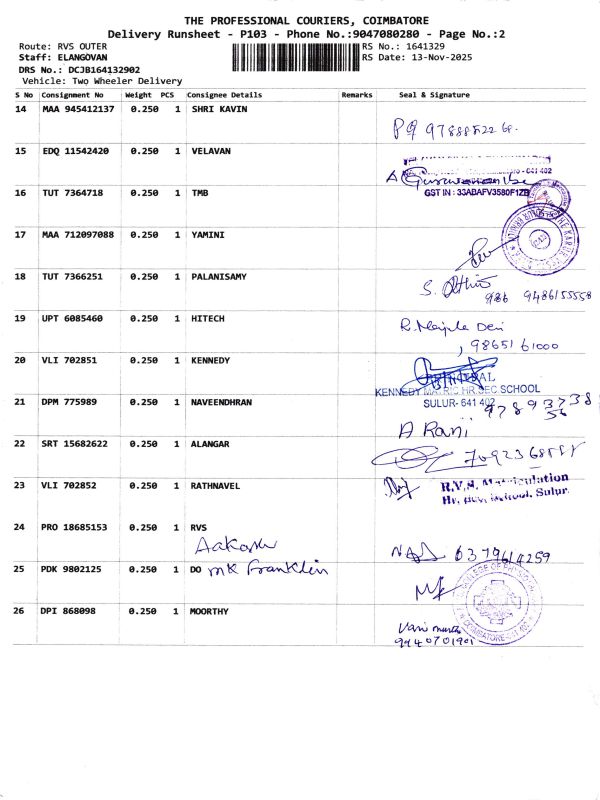 THE PROFESSIONAL COURIERS, COIMBATORE
Delivery Runsheet - P103 - Phone No.:9047080280 - Page No.:2
Route: RVS OUTER RS No.: 1641329
Staff: ELANGOVAN RS Date: 13-Nov-2025
DRS No.: DCJB164132902
Vehicle: Two Wheeler Delivery
S No Consignment No Weight PCS Consignee Details Remarks Seal & Signature
14 MAA 945412137 0.250 1 SHRI KAVIN
15 EDQ 11542420 0.250 1 VELAVAN
- 641 402
16 TUT 7364718 0.250 1 TMB
GST IN : 33ABAFV3580F1ZB
17 MAA 712097088 0.250 1 YAMINI
18 TUT 7366251 0.250 1 PALANISAMY
9486155558
19 UPT 6085460 0.250 1 HITECH
98651 61000
20 VLI 702851 0.250 1 KENNEDY
KENNEDY MAT.HR.SEC.SCHOOL
SULUR- 641 402
21 DPM 775989 0.250 1 NAVEENDHRAN
A Rani
22 SRT 15682622 0.250 1 ALANGAR
23 VLI 702852 0.250 1 RATHNAVEL
R.V.S. Matriculation
Hr. Sec. School, Sulur.
24 PRO 18685153 0.250 1 RVS
Aakash
6379614259
25 PDK 9802125 0.250 1 DO MK Franklin
26 DPI 868098 0.250 1 MOORTHY
9940701901